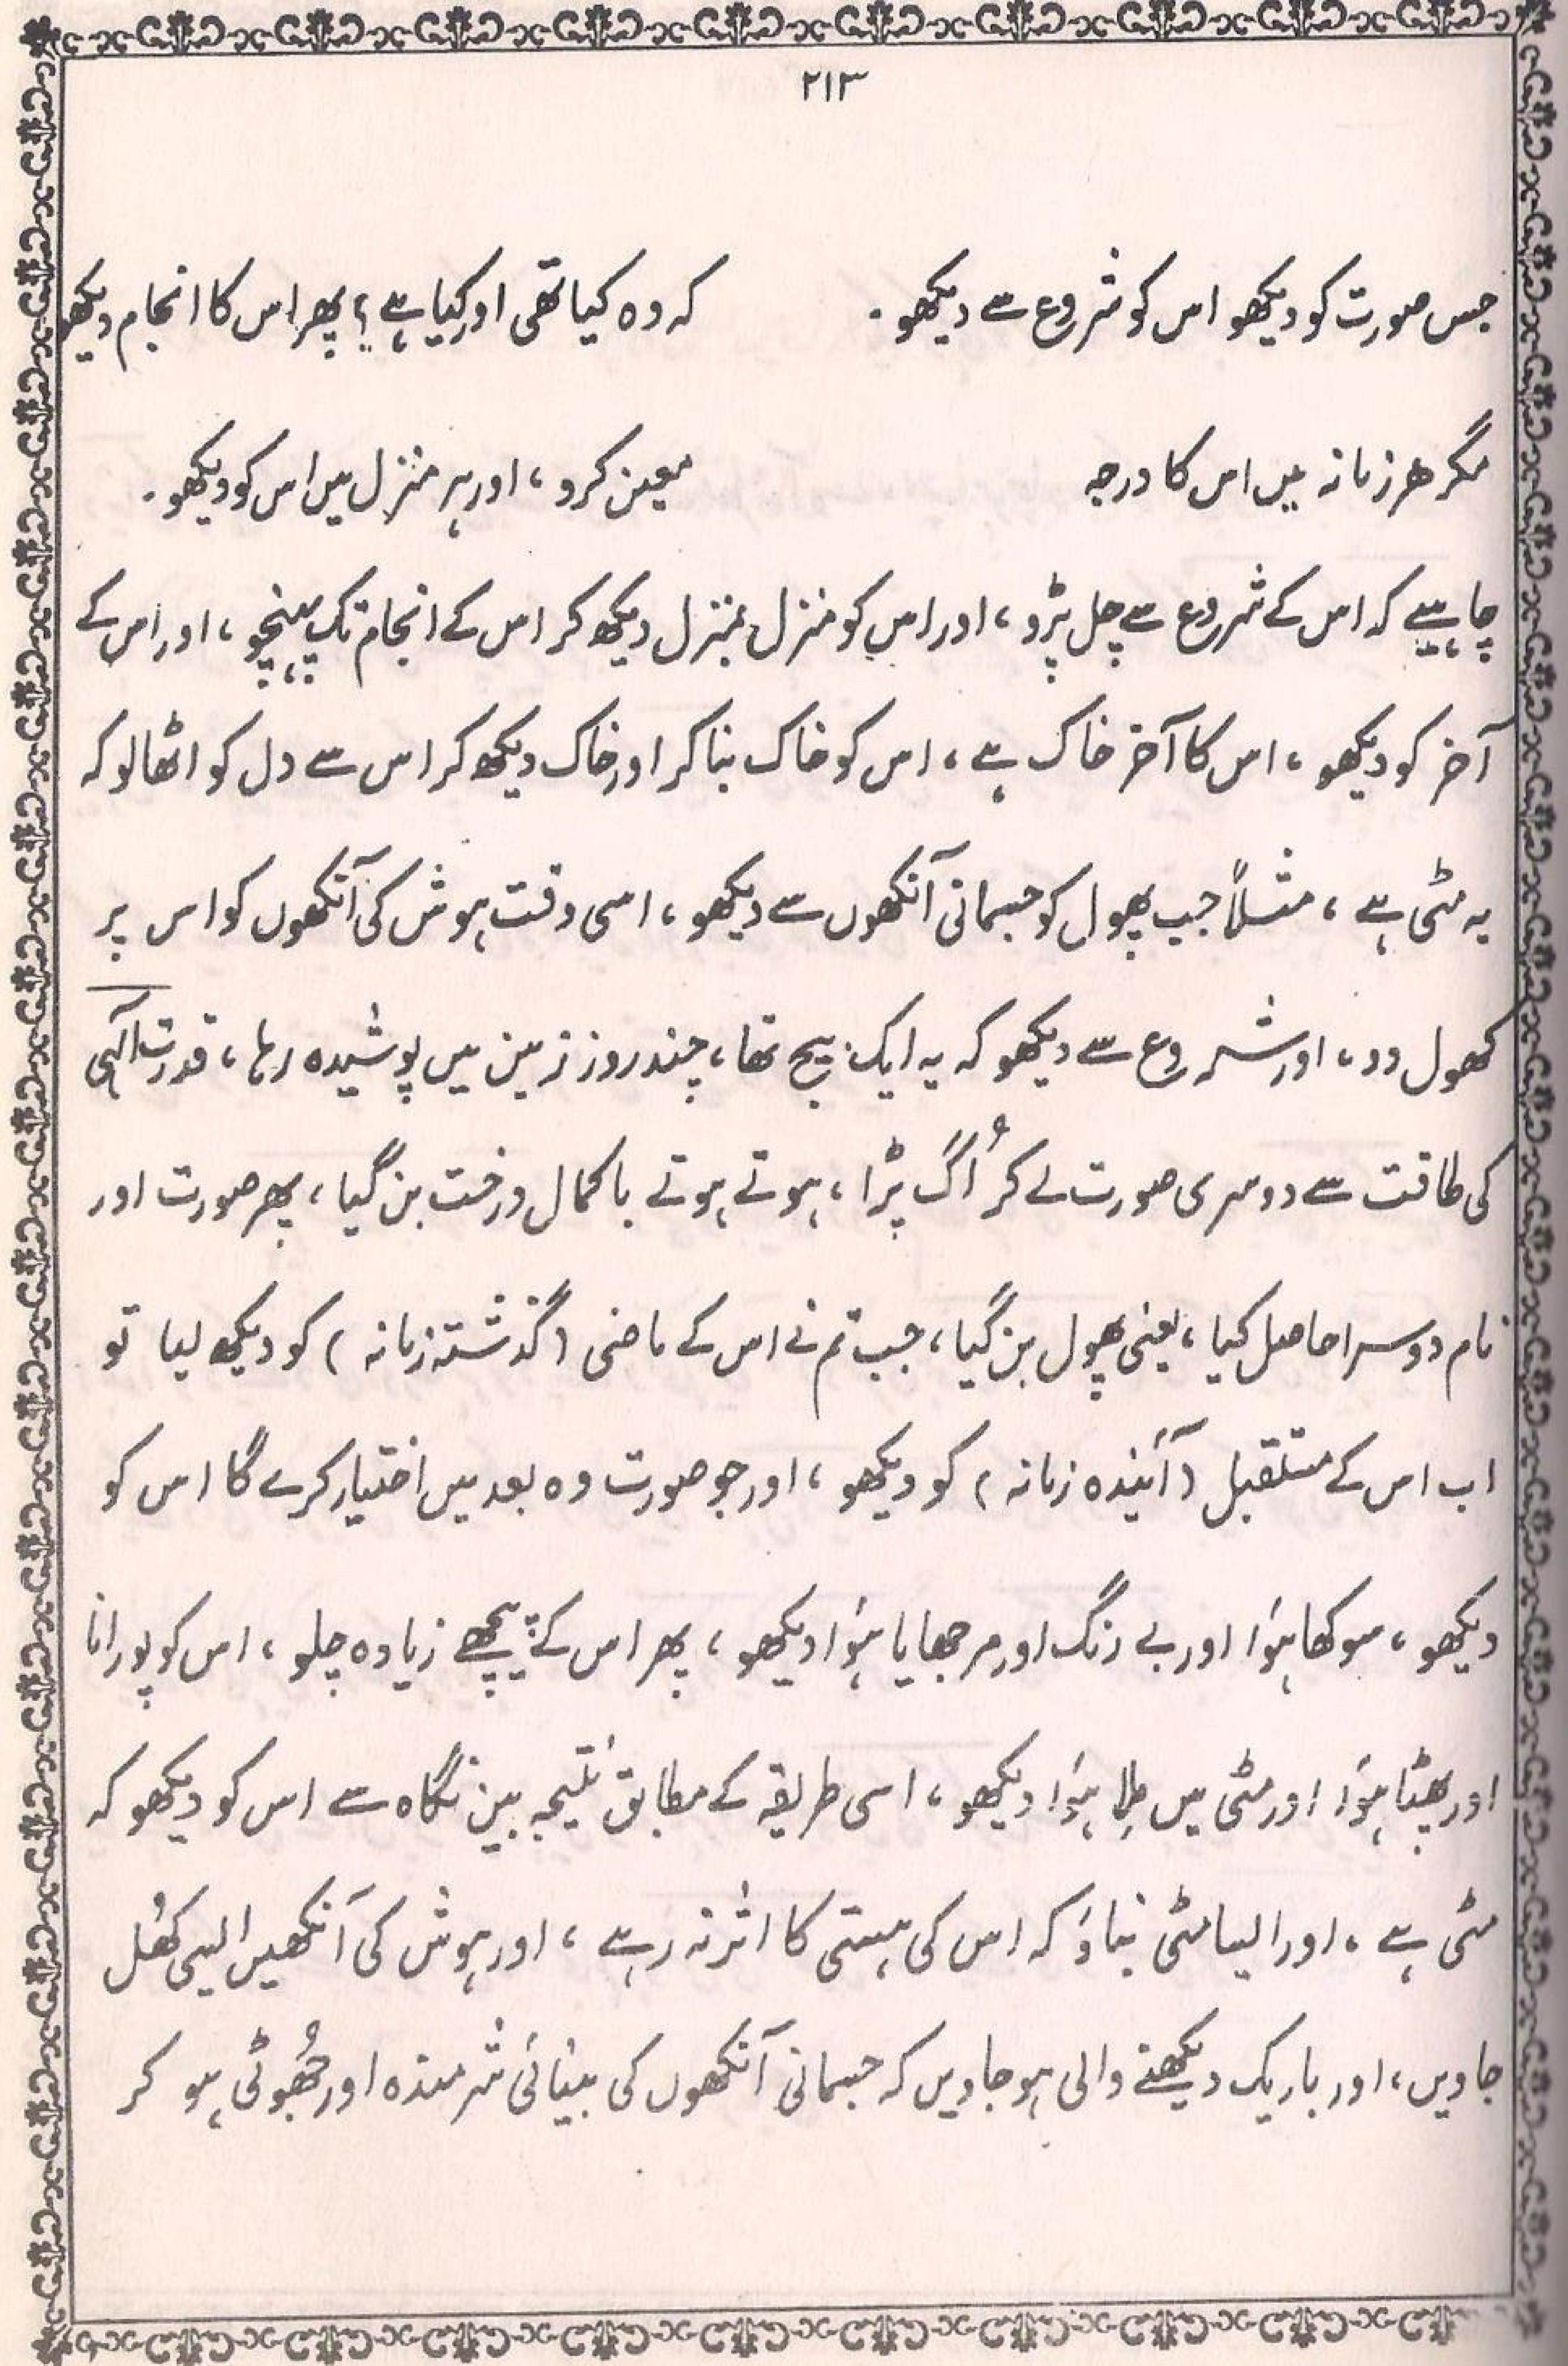 ۲۱۳
جس صورت کو دیکھو اس کو شروع سے دیکھو۔ کہ وہ کیا تھی اور کیا ہے؟ پھر اس کا انجام دیکھو
مگر ھر زمانہ میں اس کا درجہ معین کرو، اور ہر منزل میں اس کو دیکھو۔
چاہیے کہ اس کے شروع سے چل پڑو، اور اس کو منزل بمنزل دیکھ کر اس کے انجام تک پہنچو، اور اس کے
آخر کو دیکھو، اس کا آخر خاک ہے، اس کو خاک بنا کر اور خاک دیکھ کر اس سے دل کو اٹھا لو کہ
یہ مٹی ہے، مثلاً جب پھول کو جسمانی آنکھوں سے دیکھو، اسی وقت ہوش کی آنکھوں کو اس پر
کھول دو، اور شروع سے دیکھو کہ یہ ایک بیج تھا، چند روز زمین میں پوشیدہ رہا، قدرت الٰہی
کی طاقت سے دوسری صورت لے کر اُگ پڑا، ہوتے ہوتے باکمال درخت بن گیا، پھر صورت اور
نام دوسرا حاصل کیا، یعنی پھول بن گیا، جب تم نے اس کے ماضی (گذشتہ زمانہ) کو دیکھ لیا تو
اب اس کے مستقبل (آئیندہ زمانہ) کو دیکھو، اور جو صورت وہ بعد میں اختیار کرے گا اس کو
دیکھو، سوکھا ہؤا اور بے رنگ اور مرجھایا ہؤا دیکھو، پھر اس کے پیچھے زیادہ چلو، اس کو پورانا
اور پھٹا ہؤا اور مٹی میں مِلا ہؤا دیکھو، اسی طریقہ کے مطابق نتیجہ بین نگاہ سے اس کو دیکھو کہ
مٹی ہے، اور ایسا مٹی بناؤ کہ اس کی ہستی کا اثر نہ رہے، اور ہوش کی آنکھیں ایسی کھُل
جاویں، اور باریک دیکھنے والی ہو جاویں کہ جسمانی آنکھوں کی بینائی شرمندہ اور جھُوٹی ہو کر